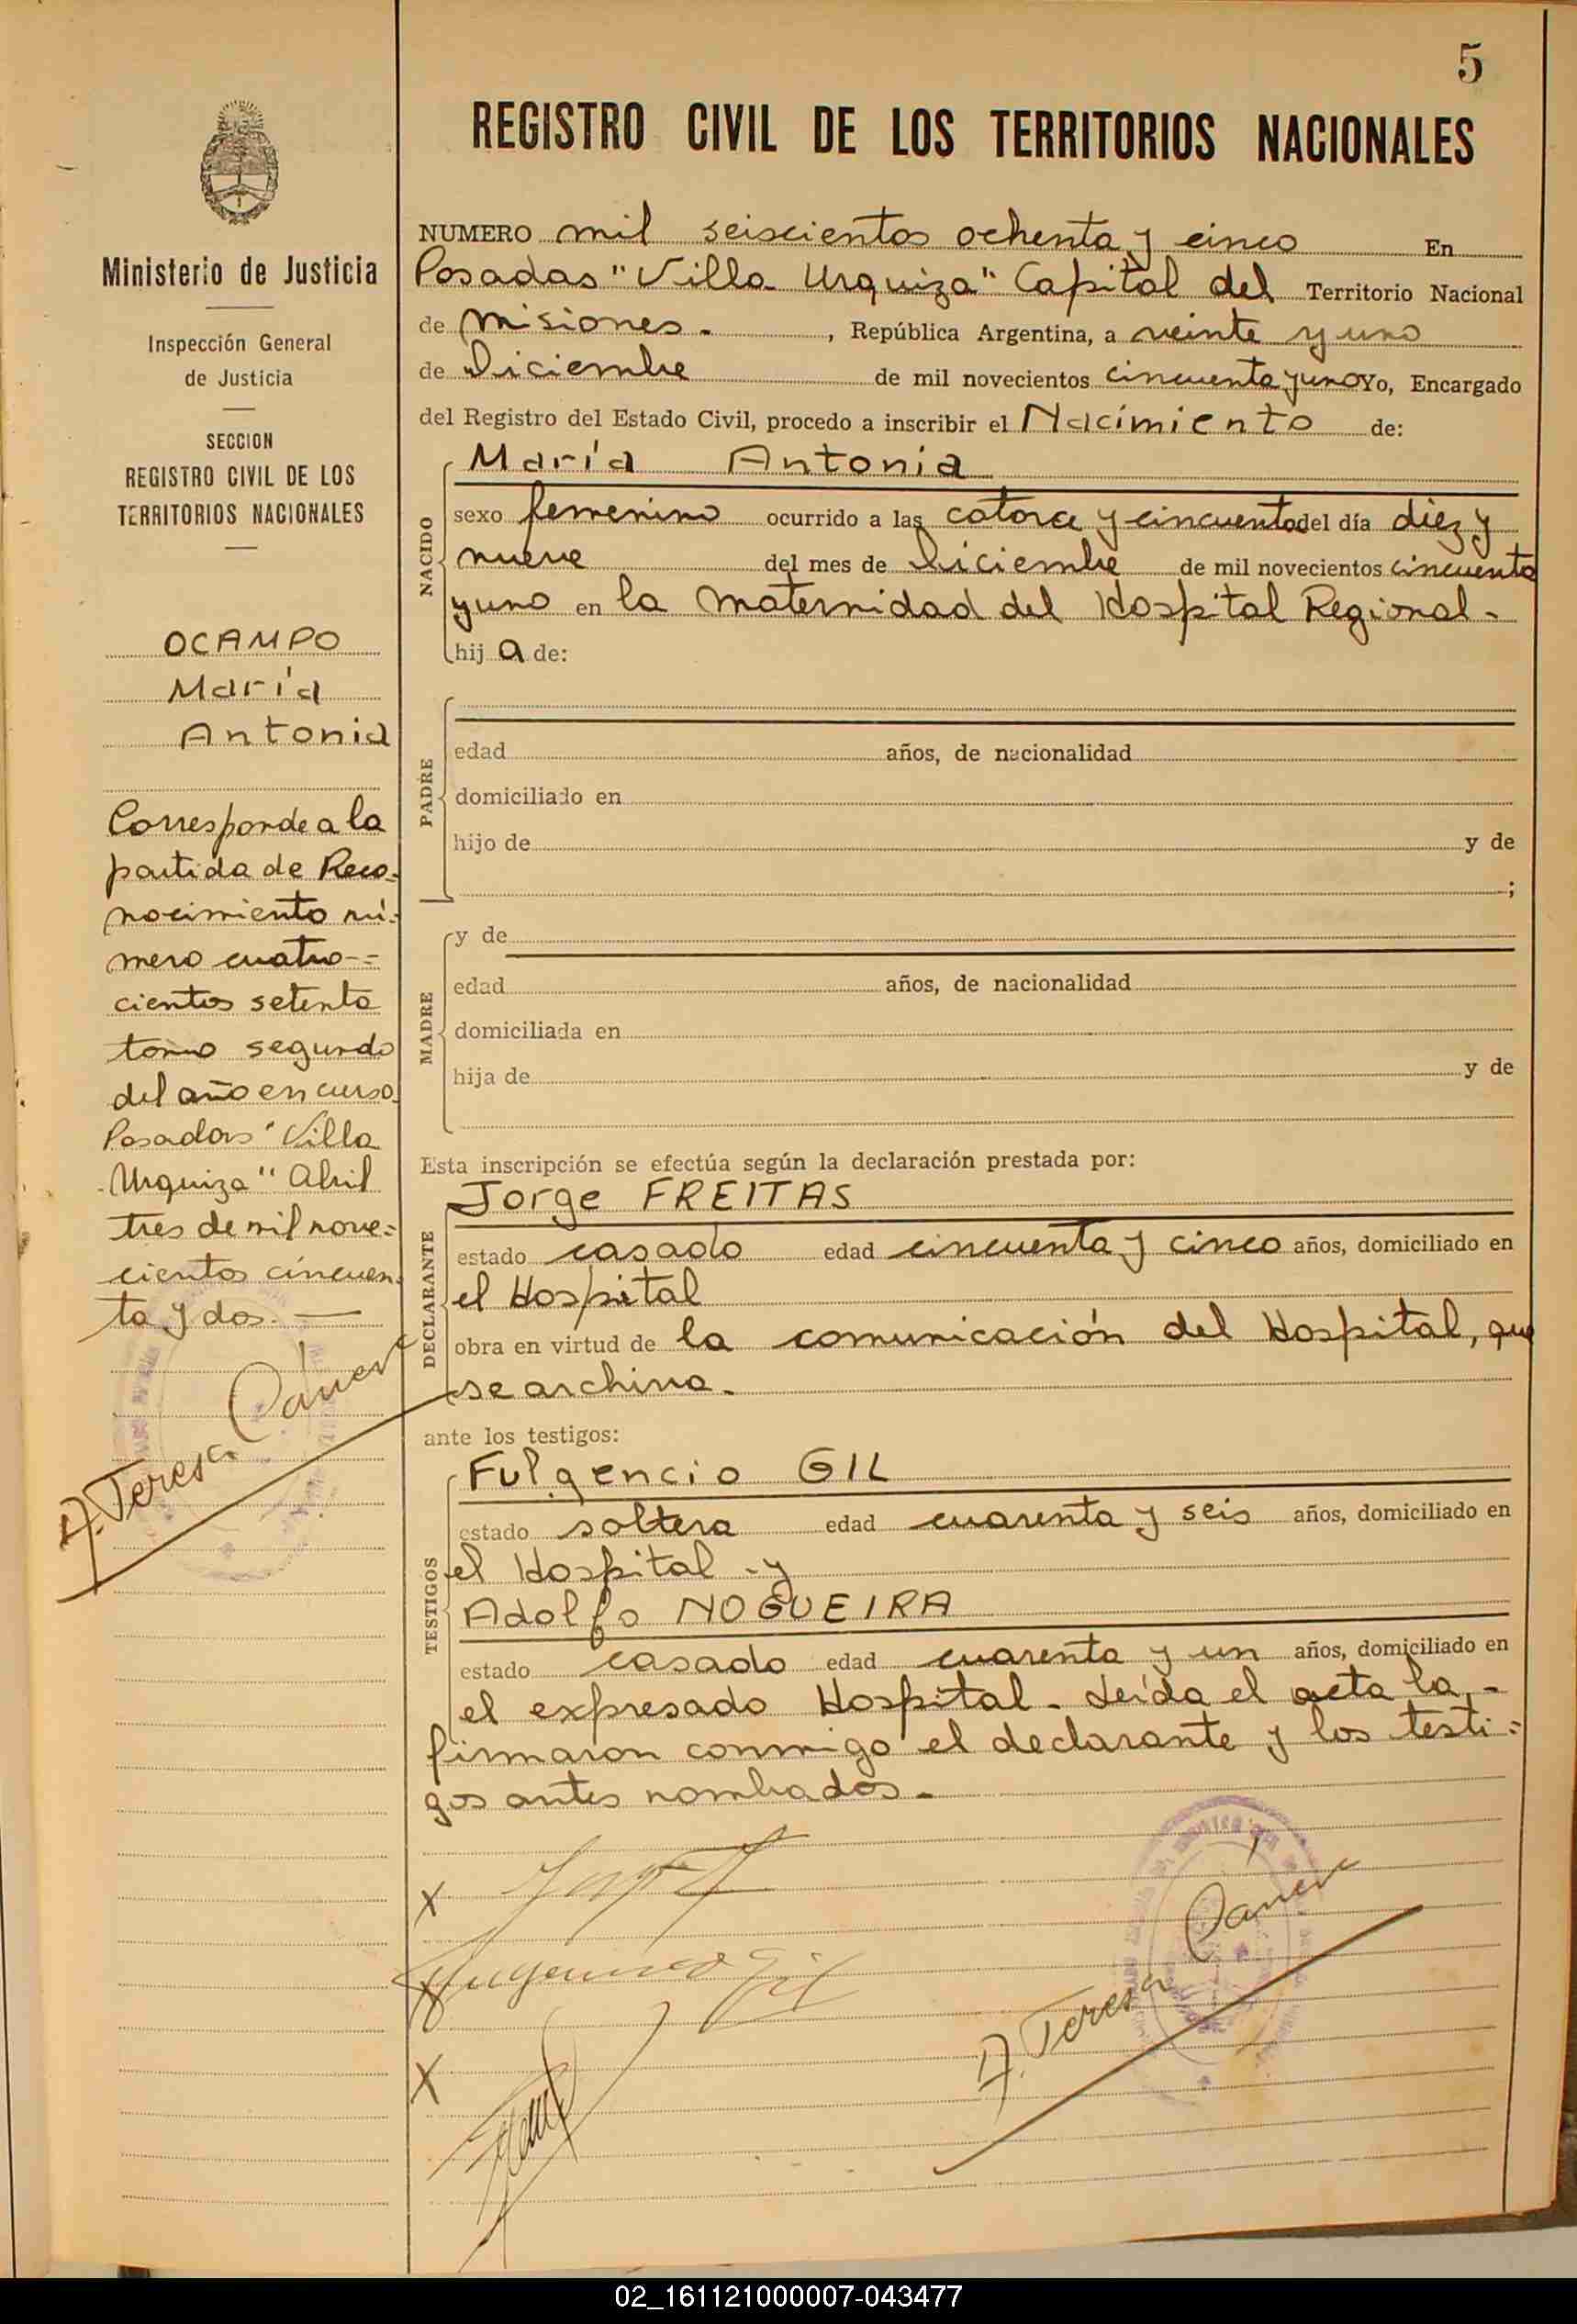 5
REGISTRO CIVIL DE LOS TERRITORIOS NACIONALES
Ministerio de Justicia
Inspección General
de Justicia
SECCION
REGISTRO CIVIL DE LOS
TERRITORIOS NACIONALES
OCAMPO
María
Antonia
Corresponde a la
partida de Reco=
nocimiento nú=
mero cuatro-=
cientos setenta
tomo segundo
del año en curso
Posadas "Villa
Urquiza" Abril
tres de mil nove=
cientos cincuen=
ta y dos. —
A. Teresa
NUMERO mil seiscientos ochenta y cinco En
Posadas "Villa Urquiza" Capital del Territorio Nacional
de Misiones. , República Argentina, a veinte y uno
de Diciembre de mil novecientos cincuenta y uno Yo, Encargado
del Registro del Estado Civil, procedo a inscribir el Nacimiento de:
María Antonia
NACIDO
sexo femenino ocurrido a las catorce y cincuenta del día diez y
nueve del mes de Diciembre de mil novecientos cincuenta
y uno en la Maternidad del Hospital Regional-
hij a de:
PADRE
edad años, de nacionalidad
domiciliado en
hijo de y de
;
MADRE
y de
edad años, de nacionalidad
domiciliada en
hija de y de
Esta inscripción se efectúa según la declaración prestada por:
DECLARANTE
Jorge FREITAS
estado casado edad cincuenta y cinco años, domiciliado en
el Hospital
obra en virtud de la comunicación del Hospital, que
se archiva.
ante los testigos:
TESTIGOS
Fulgencio GIL
estado soltera edad cuarenta y seis años, domiciliado en
el Hospital -y
Adolfo NOGUEIRA
estado casado edad cuarenta y un años, domiciliado en
el expresado Hospital- Leída el acta la -
firmaron conmigo el declarante y los testi=
gos antes nombrados.-
X
Fulgencio Gil
X
A. Teresa
02_161121000007-043477